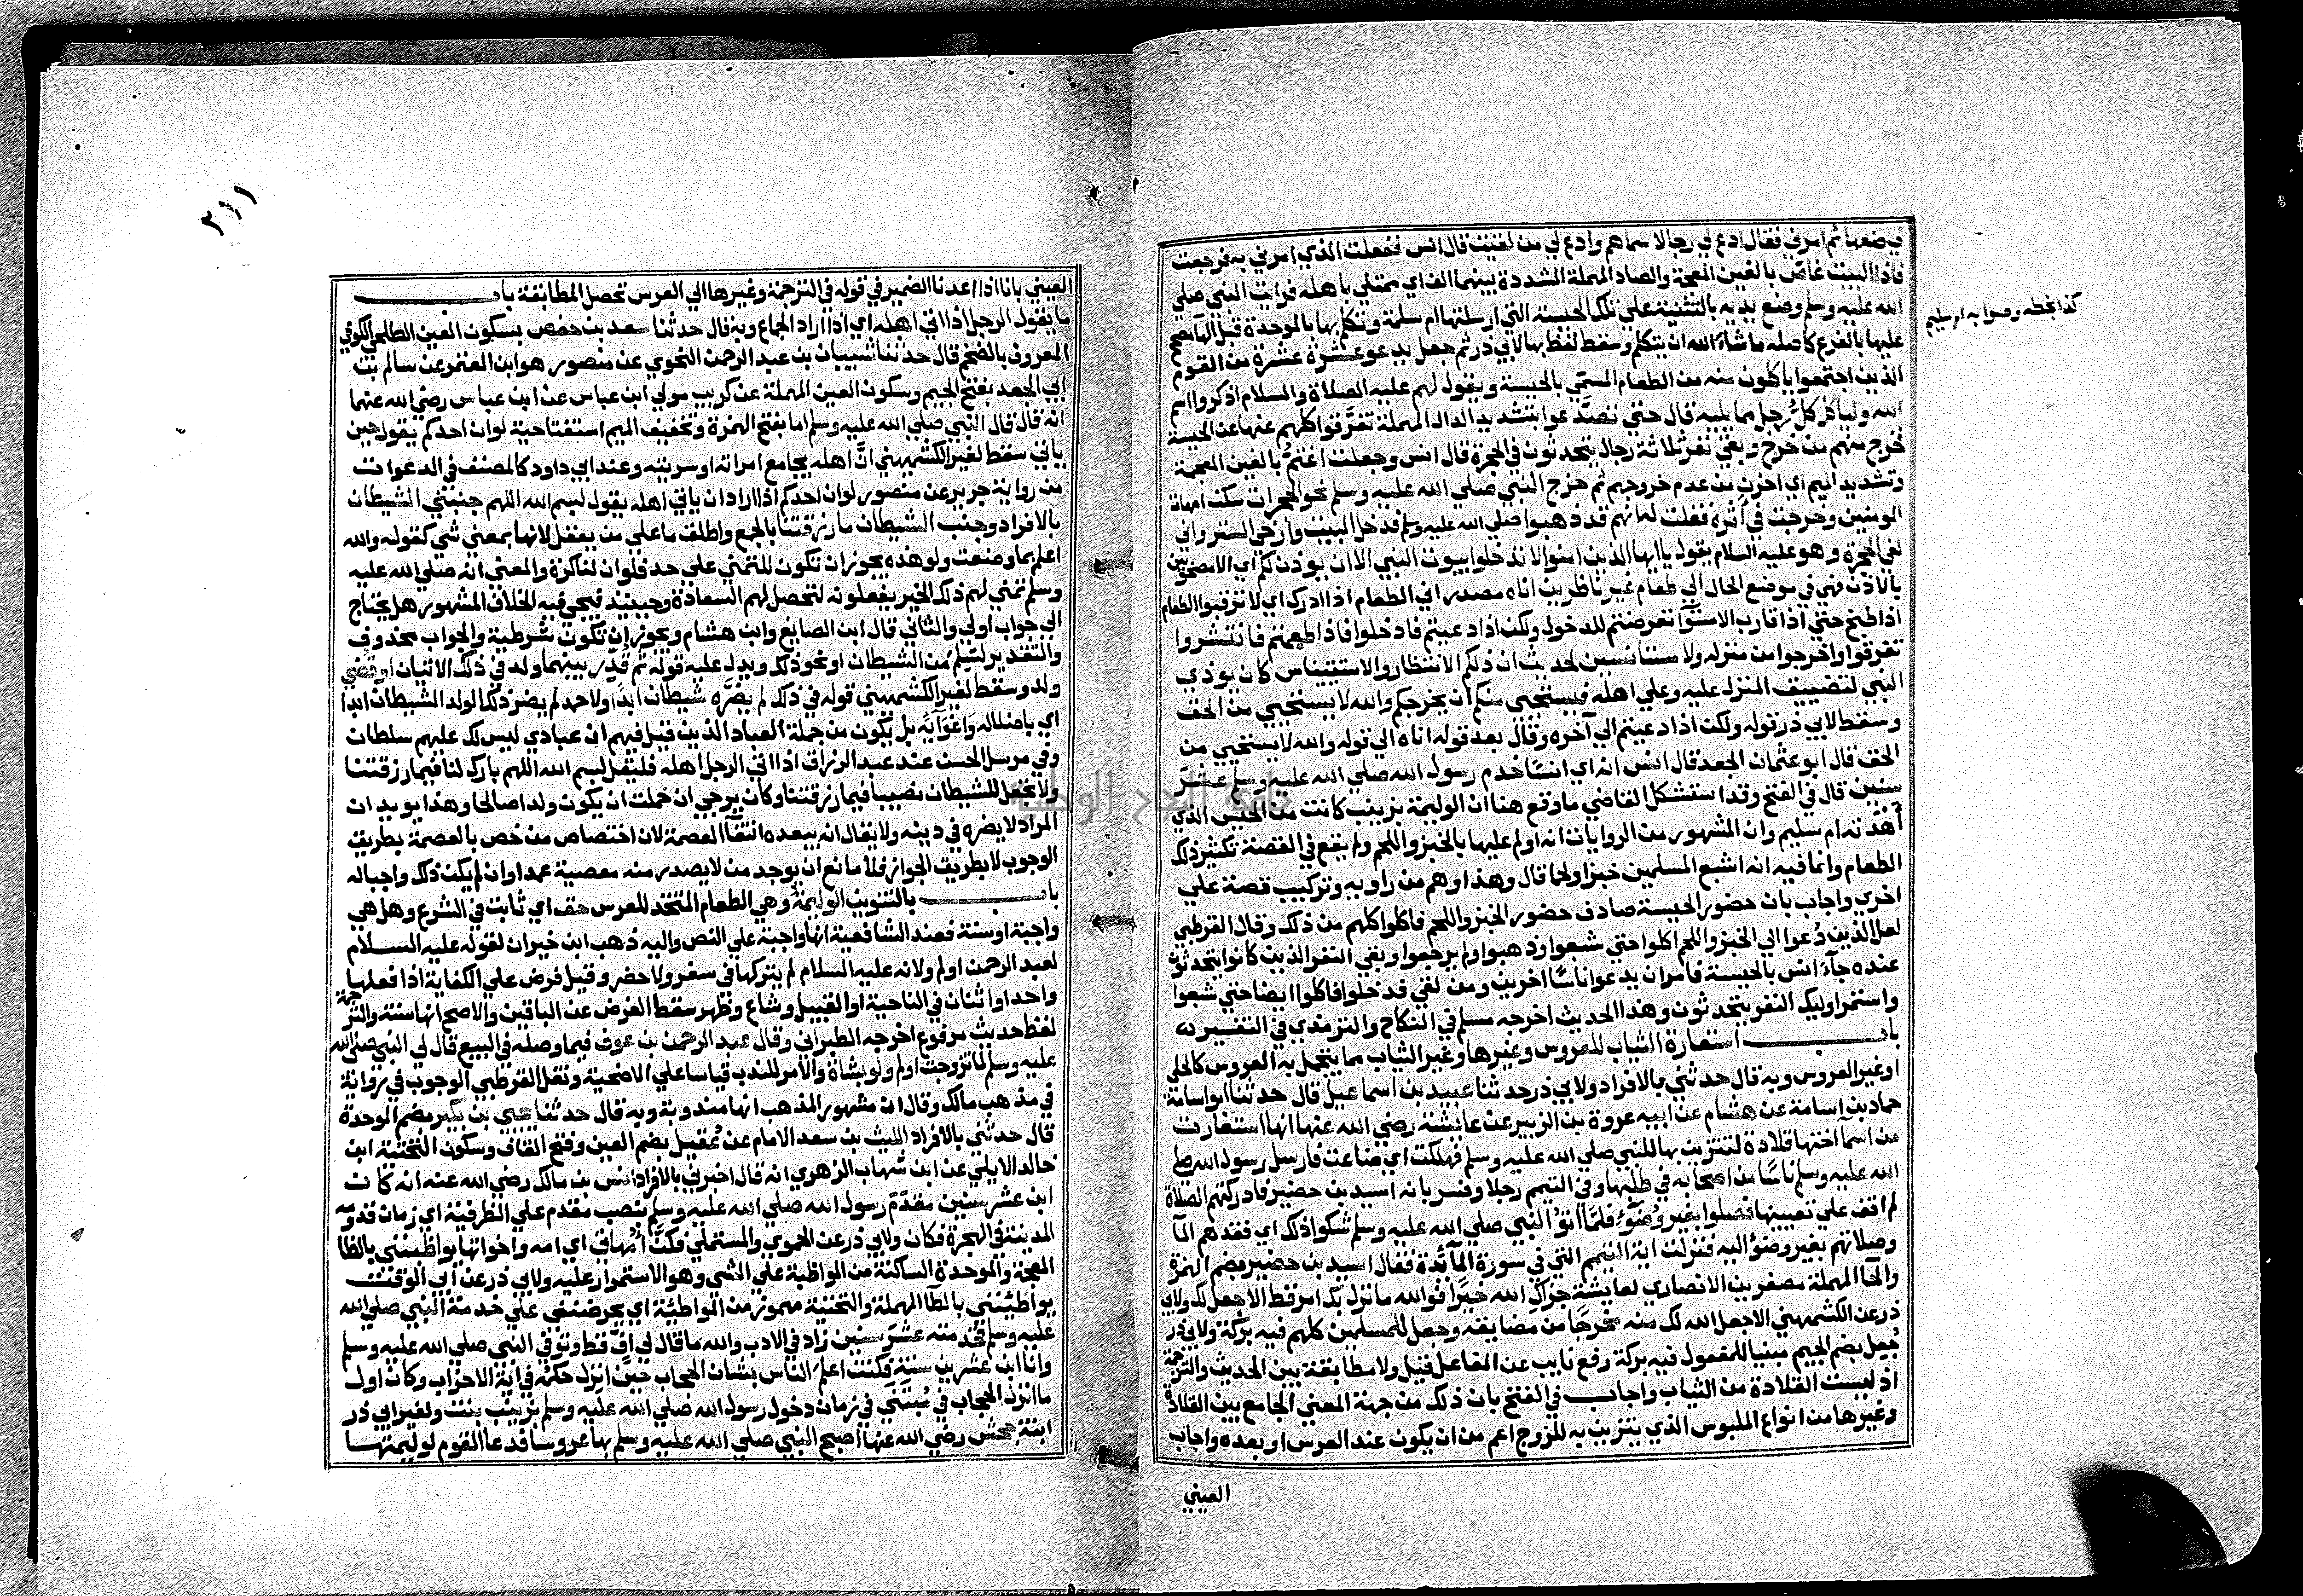 بوضعها ثم امرني فقال ادع لي رجالا سماهم وادع لي من لقيت قال انس ففعلت الذي امرني به فرجعت
فاذا البيت غاص بالغين المعجمة والصاد المهملة المشددة بينهما الف اي ممتلي باهله فرايت النبي صلي
الله عليه وسلم وضع يديه بالتثنية علي تلك الحيسة التي ارسلتها ام سلمة وتكلم بها بالموحدة قبل الها مصحح
كذا بخطه وصوابه ام سليم
عليها بالفرع كاصله ما شاء الله ان يتكلم وسقط لفظ بها لابي ذر ثم جعل يدعو عشرة عشرة من القوم
الذين اجتمعوا ياكلون منه من الطعام المسمي بالحيسة ويقول لهم عليه الصلاة والسلام اذكروا اسم
الله ولياكل كل رجل مما يليه قال حتي تصدعوا بتشديد الدال المهملة تفرقوا كلهم عنها عن الحيسة
فخرج منهم من خرج وبقي نفر ثلاثة رجال يتحدثون في الحجرة قال انس وجعلت اغتم بالغين المعجمة
وتشديد الميم اي احزن من عدم خروجهم ثم خرج النبي صلي الله عليه وسلم نحو الحجرات سكن امهات
المومنين وخرجت في اثره فقلت له انهم قد ذهبوا صلي الله عليه وسلم فدخل البيت وارخي الستر واني
لفي الحجرة وهو عليه السلام يقول ياايها الذين امنوا لا تدخلوا بيوت النبي الا ان يوذن لكم اي الا مصحوبين
بالاذن فهي في موضع الحال الي طعام غير ناظرين اناه مصدر اني الطعام اذا ادرك اي لا ترقبوا الطعام
اذا طبخ حتي اذا قارب الاستوا تعرضتم للدخول ولكن اذا دعيتم فادخلوا فاذا طعمتم فانتشروا
تفرقوا واخرجوا من منزله ولا مستانسين لحديث ان ذلكم الانتظار والاستيناس كان يوذي
النبي لتضييف المنزل عليه وعلي اهله فيستحيي منكم ان يخرجكم والله لا يستحيي من الحق
وسقط لابي ذر قوله ولكن اذا دعيتم الي آخره وقال بعد قوله اناه الي قوله والله لا يستحيي من
الحق قال ابو عثمان الجعد قال انس انه اي انسا خدم رسول الله صلي الله عليه وسلم عشر
سنين قال في الفتح وقد استشكل القاضي ما وقع هنا ان الوليمة بزينب كانت من الحيس الذي
أهدته ام سليم وان المشهور من الروايات انه اولم عليها بالخبز واللحم ولم يقع في القصة تكثير ذلك
الطعام وانما فيه انه اشبع المسلمين خبزا ولحما قال وهذا وهم من راويه وتركيب قصة علي
اخري واجاب بان حضور الحيسة صادف حضور الخبز واللحم فاكلوا كلهم من ذلك وقال القرطبي
لعل الذين دعوا الي الخبز واللحم اكلوا حتي شبعوا وذهبوا ولم يرجعوا وبقي النفر الذين كانوا يتحدثون
عنده جاء انس بالحيسة فامر ان يدعو اناسا اخرين ومن لقي فدخلوا فاكلوا ايضا حتي شبعوا
واستمر اوليك النفر يتحدثون وهذا الحديث اخرجه مسلم في النكاح والترمذي في التفسير
باب استعارة الثياب للعروس وغيرها وغير الثياب مما يتجمل به العروس كالحلي
او غير العروس وبه قال حدثني بالافراد ولابي ذر حدثنا عبيد بن اسماعيل قال حدثنا ابو اسامة
حماد بن اسامة عن هشام عن ابيه عروة بن الزبير عن عائشة رضي الله عنها انها استعارت
من اسما اختها قلادة لتتزين بها للنبي صلي الله عليه وسلم فهلكت اي ضاعت فارسل رسول الله صلي
الله عليه وسلم ناسا من اصحابه في طلبها وفي التيمم رجلا وفسر بانه اسيد بن حضير فادركتهم الصلاة
لم اقف علي تعيينها فصلوا بغير وضوء فلما اتوا النبي صلي الله عليه وسلم شكوا ذلك اي فقدهم المآ
وصلاتهم بغير وضو اليه فنزلت اية التيمم التي في سورة المآئدة فقال اسيد بن حضير بضم الهمزة
والحا المهملة مصغرين الانصاري لعايشة جزاك الله خيرا فوالله ما نزل بك امر قط الا جعل لك ولابي
ذر عن الكشميهني الا جعل الله لك منه مخرجا من مضايقه وجعل للمسلمين كلهم فيه بركة ولابي ذر
جعل بضم الجيم مبنيا للمفعول فيه بركة رفع نايب عن الفاعل قيل ولا مطابقة بين الحديث والترجمة
اذ ليست القلادة من الثياب واجاب في الفتح بان ذلك من جهة المعني الجامع بين القلادة
وغيرها من انواع الملبوس الذي يتزين به للزوج اعم من ان يكون عند العرس او بعده واجاب
العيني
٢١١
العيني بانا اذا اعدنا الضمير في قوله في الترجمة وغيرها الي العرس تحصل المطابقة باب
ما يقول الرجل اذا اتي اهله اي اذا اراد الجماع وبه قال حدثنا سعد بن حفص بسكون العين الطلحي الكوفي
المعروف بالضخم قال حدثنا شيبان بن عبد الرحمن النحوي عن منصور هو ابن المعتمر عن سالم بن
ابي الجعد بفتح الجيم وسكون العين المهملة عن كريب مولي ابن عباس عن ابن عباس رضي الله عنهما
انه قال قال النبي صلي الله عليه وسلم اما بفتح الهمزة وتخفيف الميم استفتاحية لو ان احدكم يقول حين
ياتي سقط لغير الكشميهني ان اهله يجامع امراته او سريته وعند ابي داود كالمصنف في الدعوات
من رواية جرير عن منصور لو ان احدكم اذا اراد ان ياتي اهله يقول لبسم الله اللهم جنبني الشيطان
بالافراد وجنب الشيطان ما رزقتنا بالجمع واطلق ما علي من يعقل لانها بمعني شي كقوله والله
اعلم بما وضعت ولو هذه يجوز ان تكون للتمني علي حد فلو ان لنا كرة والمعني انه صلي الله عليه
وسلم تمني لهم ذلك الخير يفعلونه لتحصل لهم السعادة وحينيذ فيجي فيه الخلاف المشهور هل يحتاج
الي جواب اولي والثاني قال ابن الصايغ وابن هشام ويجوز ان تكون شرطية والجواب محذوف
والتقدير لسلم من الشيطان او نحو ذلك ويدل عليه قوله ثم قدر بينهما ولد في ذلك الاتيان او قضي
ولد وسقط لغير الكشميهني قوله في ذلك لم يضره شيطان ابدا ولاحمد لم يضر ذلك الولد الشيطان ابدا
اي باضلاله واغوآيه بل يكون من جملة العباد الذين قيل فيهم ان عبادي ليس لك عليهم سلطان
وفي مرسل الحسن عند عبد الرزاق اذا اتي الرجل اهله فليقل بسم الله اللهم بارك لنا فيما رزقتنا
ولا تجعل للشيطان نصيبا فيما رزقتنا وكان يرجي ان حملت ان يكون ولدا صالحا وهذا يويد ان
المراد لا يضره في دينه ولا يقال انه يبعده انتفآ العصمة لان اختصاص من خص بالعصمة بطريق
الوجوب لا بطريق الجواز فلا مانع ان يوجد من لا يصدر منه معصية عمدا وان لم يكن ذلك واجبا له
باب بالتنوين الوليمة وهي الطعام المتخذ للعرس حق اي ثابت في الشرع وهل هي
واجبة او سنة فعند الشافعية انها واجبة علي النص واليه ذهب ابن خيران لقوله عليه السلام
لعبد الرحمن اولم ولانه عليه السلام لم يتركها في سفر ولا حضر وقيل فرض علي الكفاية اذا فعلها
واحد او اثنان في الناحية او القبيل وشاع وظهر سقط الفرض عن الباقين والاصح انها سنة والترجمة
لفظ حديث مرفوع اخرجه الطبراني وقال عبد الرحمن بن عوف فيما وصله في البيع قال لي النبي صلي الله
عليه وسلم لما تزوجت اولم ولو بشاة والامر للندب قياسا علي الاضحية ونقل القرطبي الوجوب في رواية
في مذهب مالك وقال ان مشهور المذهب انها مندوبة وبه قال حدثنا يحيي بن بكير بضم الموحدة
قال حدثني بالافراد الليث بن سعد الامام عن عقيل بضم العين وفتح القاف وسكون التحتية ابن
خالد الايلي عن ابن شهاب الزهري انه قال اخبرني بالافراد انس بن مالك رضي الله عنه انه كان
ابن عشر سنين مقدم رسول الله صلي الله عليه وسلم بنصب مقدم علي الظرفية اي زمان قدومه
المدينة في الهجرة فكان ولابي ذر عن الحموي والمستملي فكن امهاتي اي امه واخواتها يواظبنني بالظا
المعجمة والموحدة الساكنة من المواظبة علي الشي وهو الاستمرار عليه ولابي ذر عن ابي الوقت
يواطيننني بالطآ المهملة والتحتية مهموز من المواطية اي يحرضنني علي خدمة النبي صلي الله
عليه وسلم فخدمته عشر سنين زاد في الادب والله ما قال لي اف قط وتوفي النبي صلي الله عليه وسلم
وانا ابن عشرين سنة فكنت اعلم الناس بشان الحجاب حين انزل حكمه في اية الاحزاب وكان اول
ما انزل الحجاب في مبتني في زمان دخول رسول الله صلي الله عليه وسلم بزينب بنت ولغير ابي ذر
ابنة جحش رضي الله عنها اصبح النبي صلي الله عليه وسلم بها عروسا فدعا القوم لوليمتها